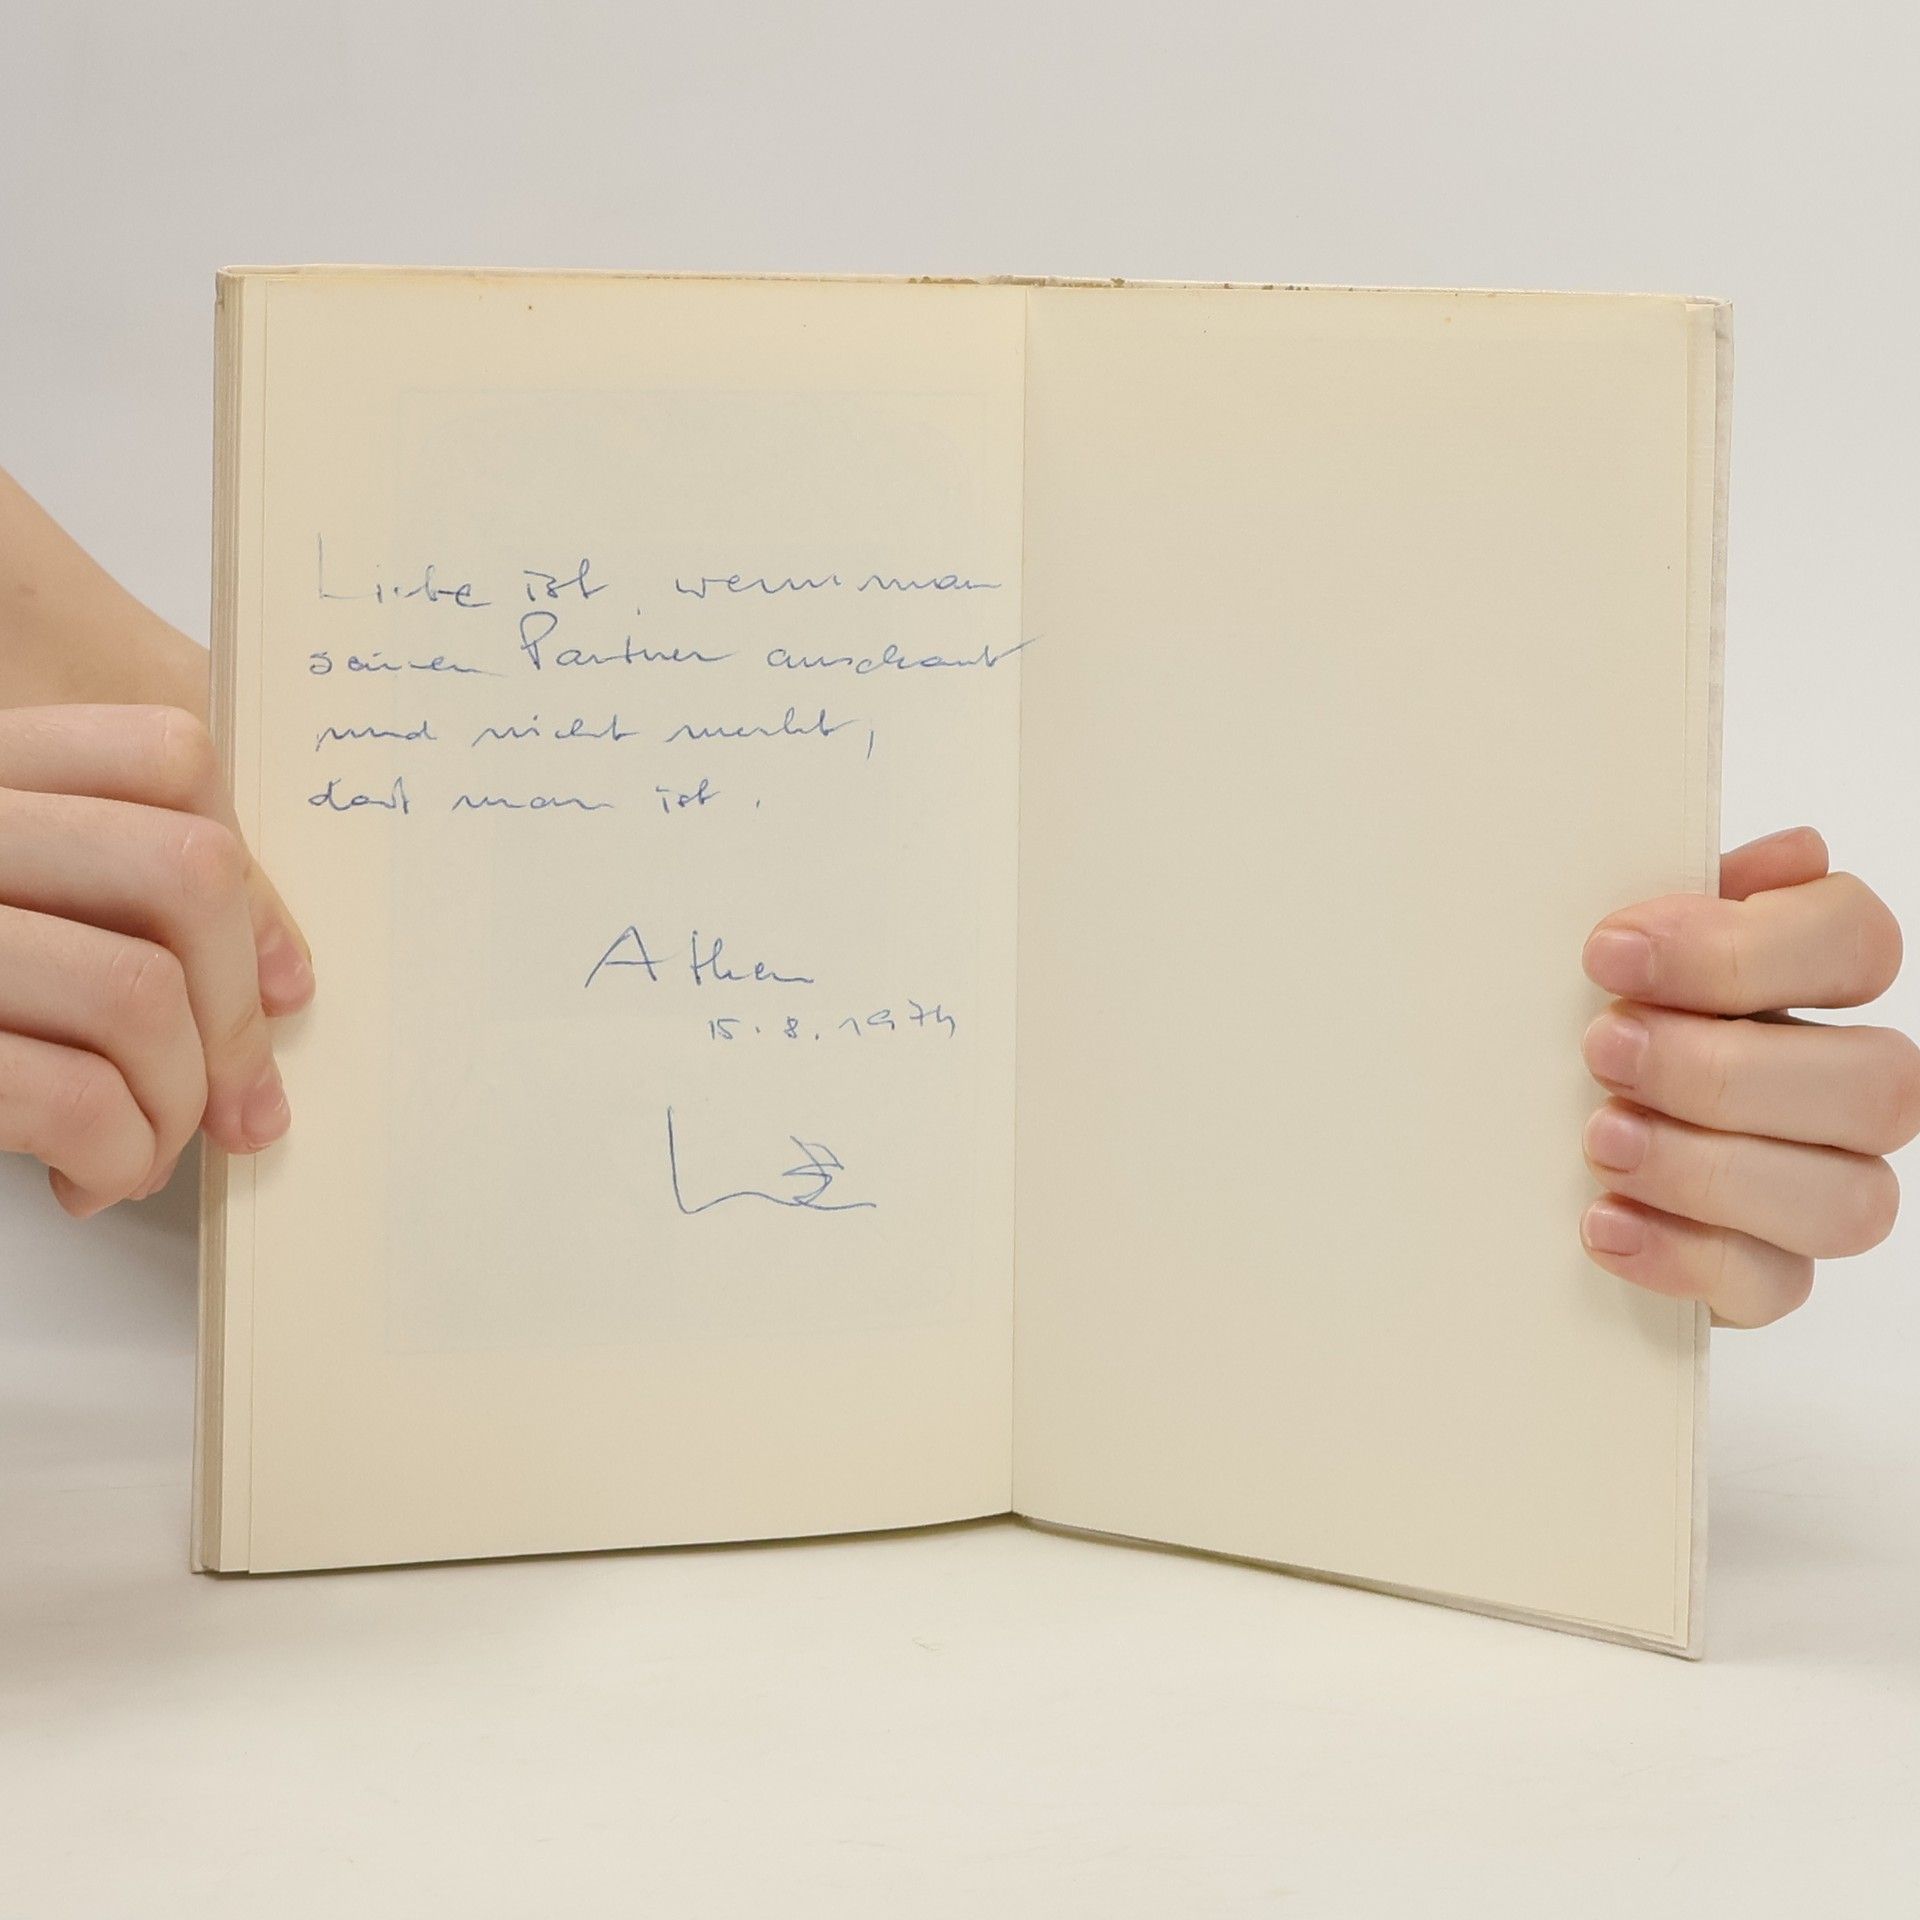 Liebe ist, wenn man
seinen Partner anschaut
und nicht merkt,
daß man ist.
Athen
15.8.1974